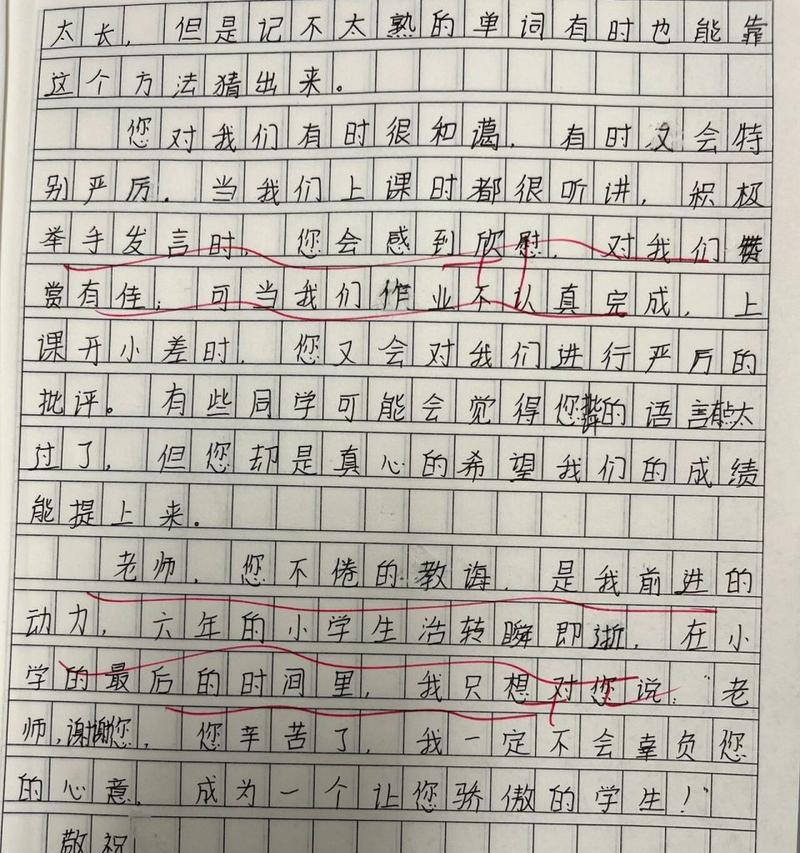 太长，但是记不太熟的单词有时也能靠
这个方法猜出来。
您对我们有时很和蔼，有时又会特
别严厉．当我们上课时都很听讲，积极
举手发言时，您会感到欣慰，对我们赞
赏有佳；可当我们作业不认真完成，上
课开小差时，您又会对我们进行严厉的
批评。有些同学可能会觉得您的语言太
过了，但您却是真心的希望我们的成绩
能提上来。
老师，您不倦的教诲，是我前进的
动力，六年的小学生活转瞬即逝，在小
学的最后的时间里，我只想对您说："老
师，谢谢您，您辛苦了，我一定不会辜负您
的心意，成为一个让您骄傲的学生！"
敬祝